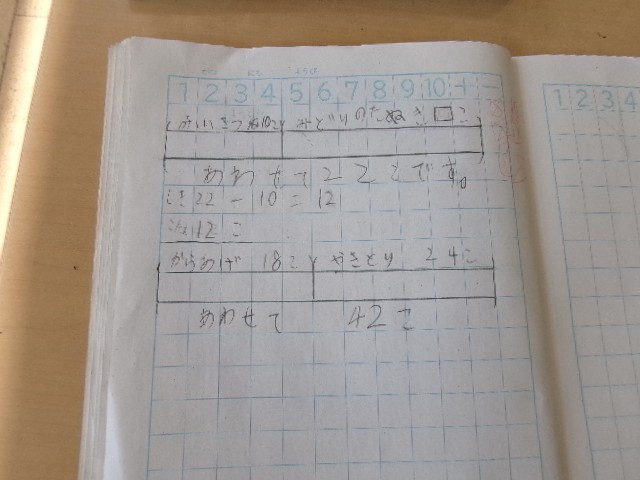 1 2 3 4 5 6 7 8 9 10 + −
あかいきつね10こ みどりのたぬき □こ
あわせて22こです。
しき 22 − 10 = 12
こたえ 12こ
からあげ 18こ やきとり 24こ
あわせて 42こ
1 2 3 4